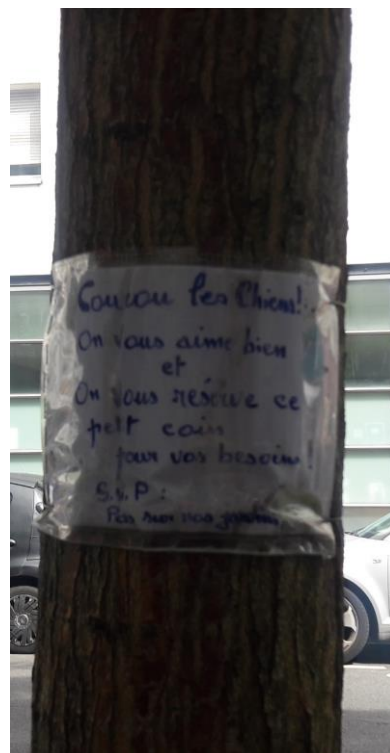 Coucou les Chiens!..
On vous aime bien
et
On vous réserve ce
petit coin
pour vos besoins!
S.V.P :
Pas sur nos jardins